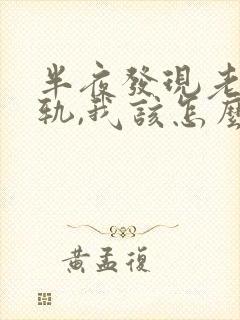 半夜發現老
軌,我該怎麼
黃孟復